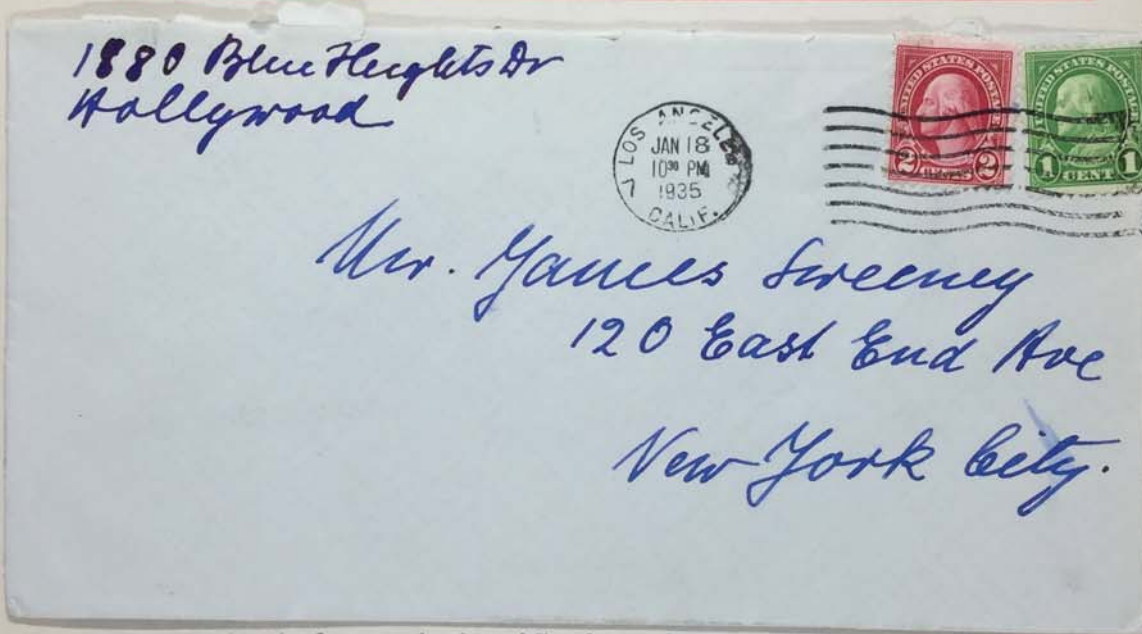 1880 Blue Heights Dr
Hollywood
LOS ANGELES
JAN 18
10³⁰ PM
1935
CALIF.
UNITED STATES POSTAGE
2 2
UNITED STATES POSTAGE
1 CENT 1
Mr. James Sweeney
120 East End Ave
New York City.